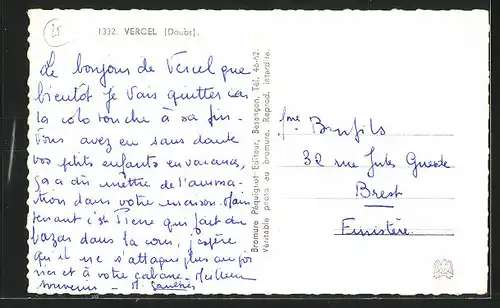 1332. VERCEL (Doubs).
Le bonjour de Vercel que
bientôt je vais quitter car
la colo touche à sa fin.
Vous avez eu sans doute
vos petits enfants en vacances,
ça a dû mettre de l'anima-
tion dans votre maison. Main
tenant c'est Pierre qui fait du
bazar dans la cour, j'espère
qu'il ne s'attaque plus au por
et à votre cabane - Meilleurs
souvenirs - M.
Bromure Péquignot Editeur, Besançon, Tél. 46-62.
Véritable photo au bromure. Reprod. interdite.
Mme Bonfils
32 rue Jules Guesde
Brest
Finistère.